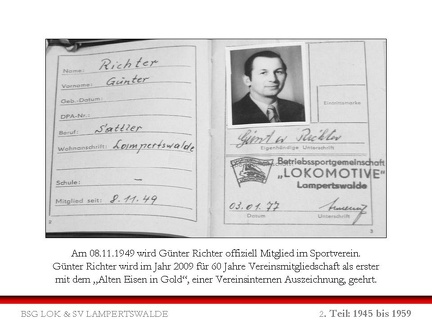 Name: Richter
Vorname: Günter
Geb.-Datum:
DPA-Nr.:
Beruf: Sattler
Wohnanschrift: Lampertswalde
Schule: –
Mitglied seit: 8.11.49
2
Eintrittsmarke
Günter Richter
Eigenhändige Unterschrift
Betriebssportgemeinschaft
„LOKOMOTIVE"
Lampertswalde
03.01.77
Datum Unterschrift
3
Am 08.11.1949 wird Günter Richter offiziell Mitglied im Sportverein.
Günter Richter wird im Jahr 2009 für 60 Jahre Vereinsmitgliedschaft als erster
mit dem „Alten Eisen in Gold", einer Vereinsinternen Auszeichnung, geehrt.
BSG LOK & SV LAMPERTSWALDE 2. Teil: 1945 bis 1959